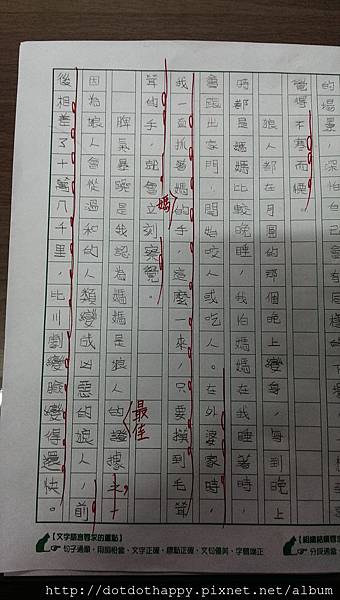 的場景，深怕自己會有
覺得不寒而慄。
狼人都在月圓的那個晚上變身，每到晚上
時都是媽媽比較晚睡，我怕媽媽在我睡著時，
會出家門，開始咬人或吃人。在外婆家時，
我一直抓著媽媽的手，這麼一來，只要摸到毛茸
茸的手，就會立刻察覺。
脾氣暴躁是我認為媽媽是狼人的最佳證據之一，
因為狼人會從溫和的人類變成凶惡的狼人，前
後相差了十萬八千里，比川劇變臉變得還快。
【組織結構要求
分段適當、
【文字語言要求的重點】
句子通順、用詞恰當、文字正確、標點正確、文句優美、字體端正
http://dotdothappy.pixnet.net/album